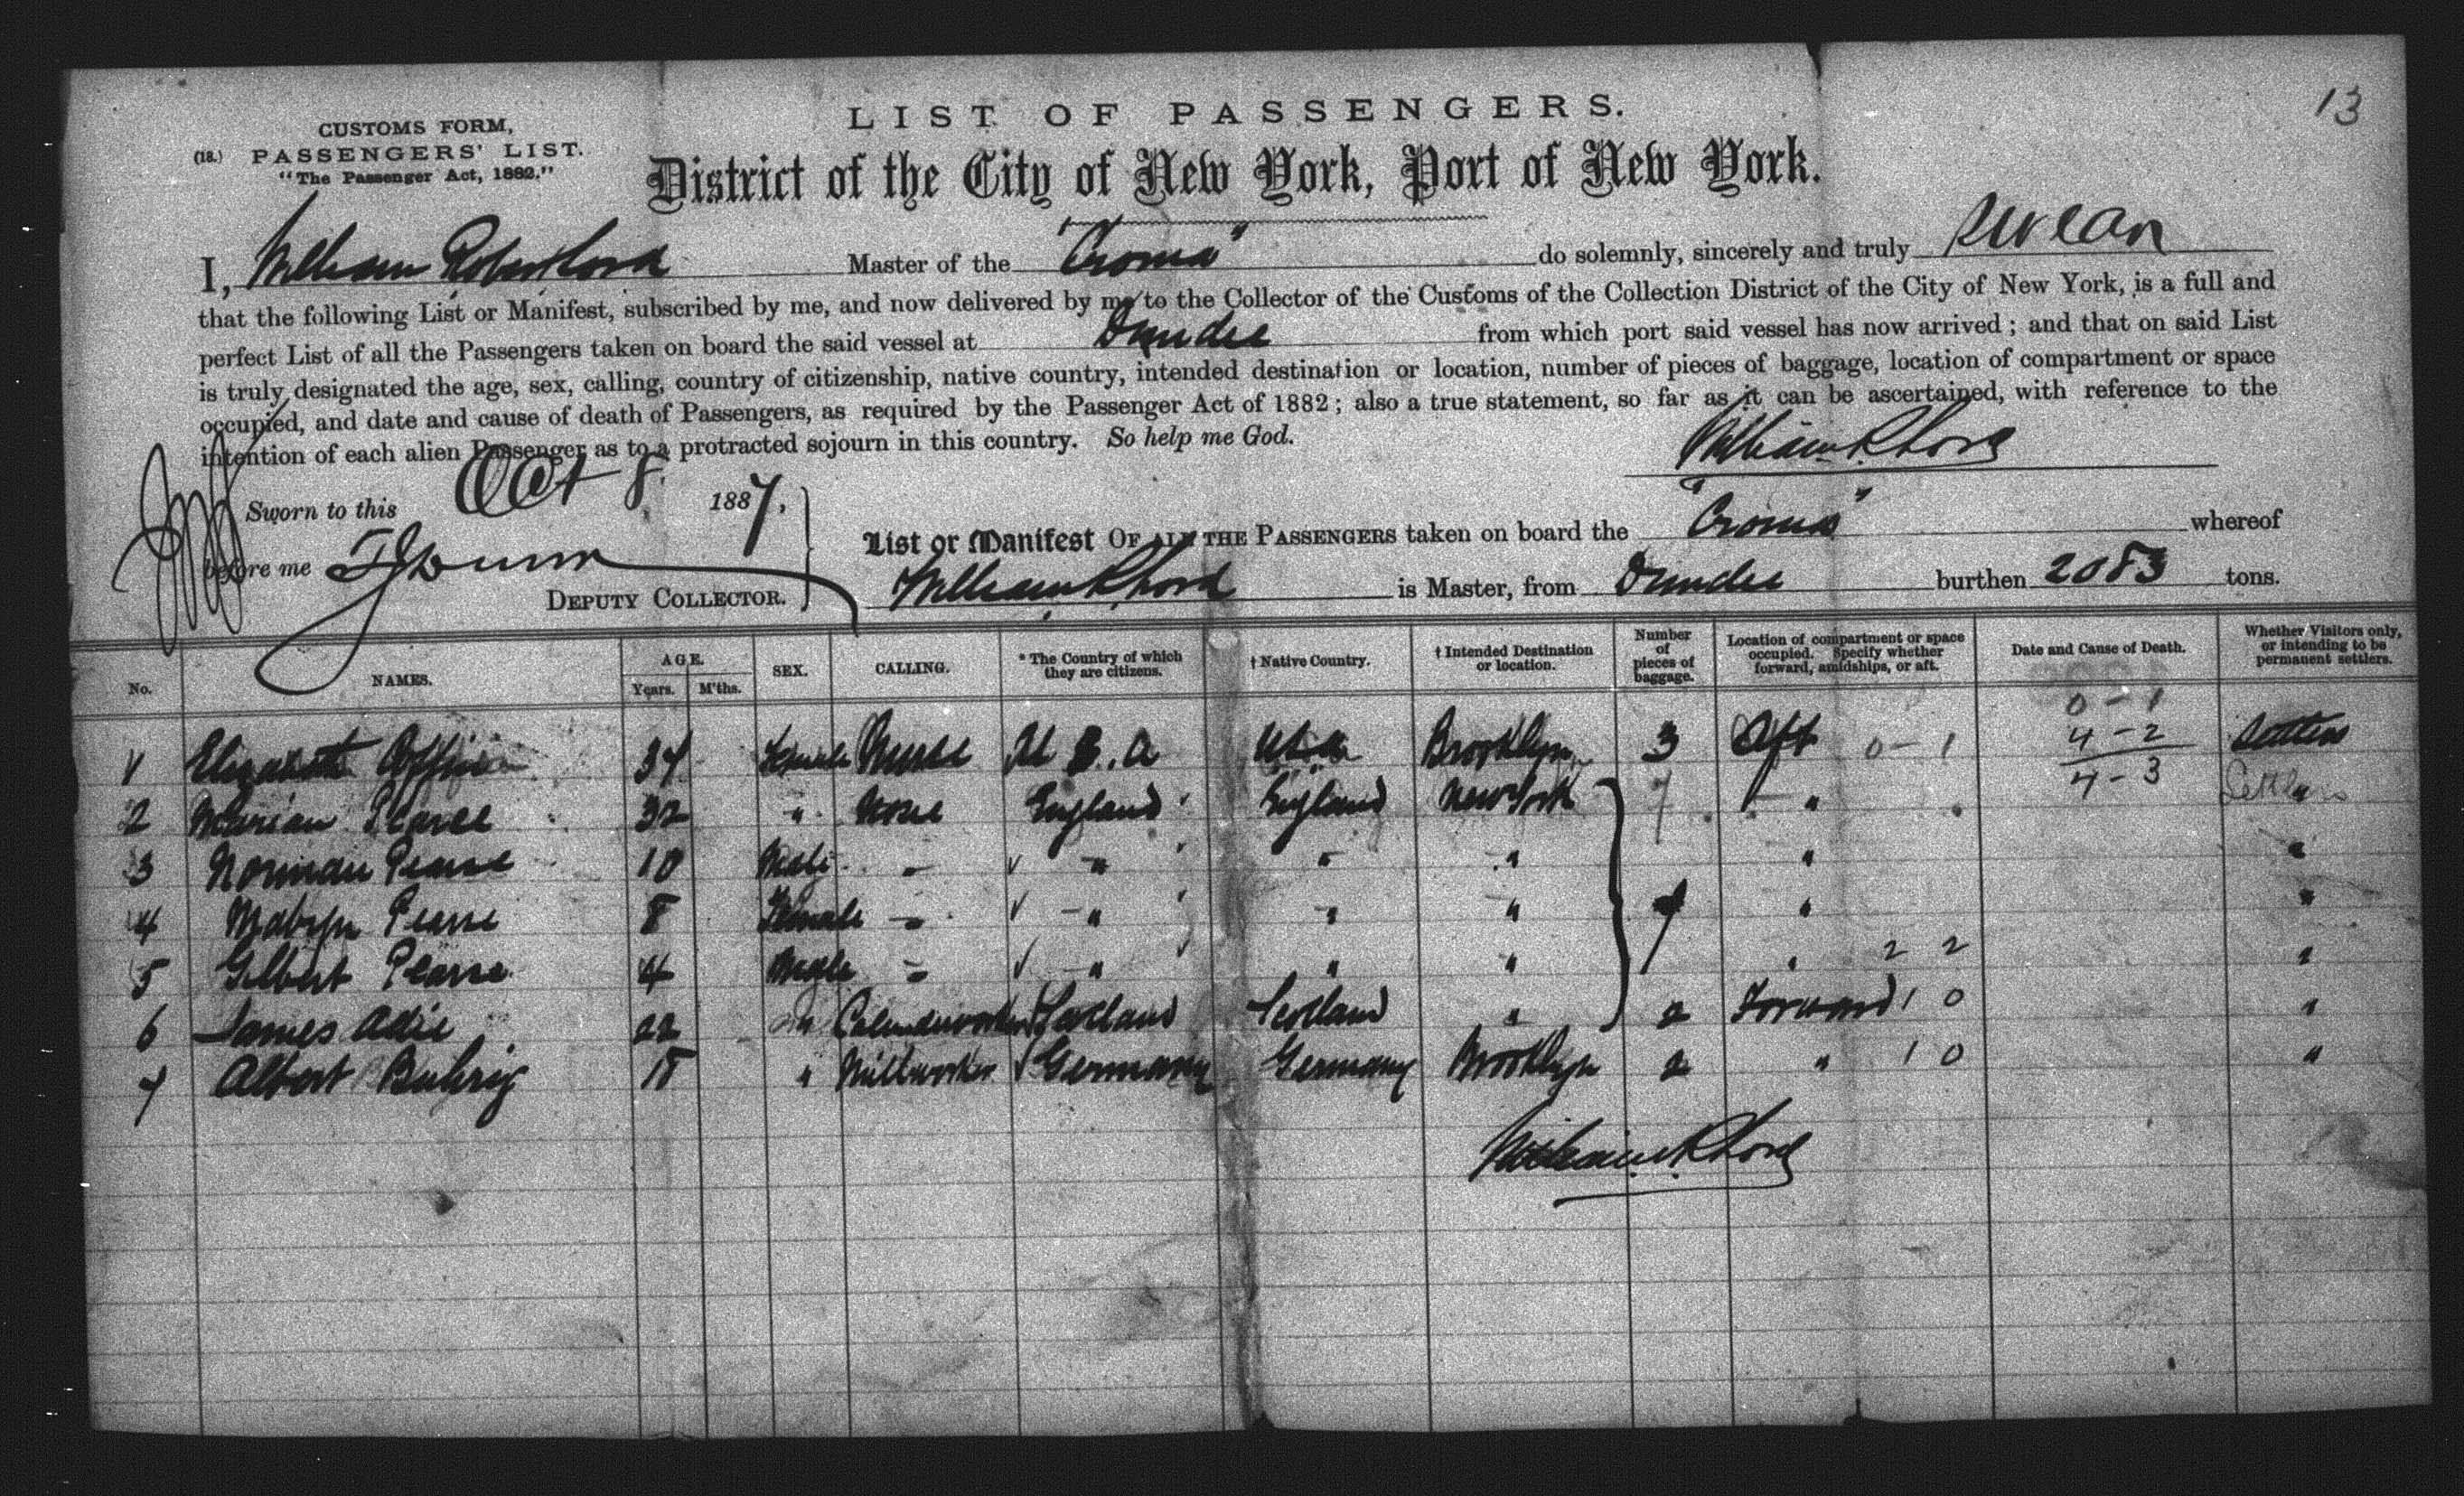 13
LIST OF PASSENGERS.
CUSTOMS FORM,
(18.) PASSENGERS' LIST.
"The Passenger Act, 1882."
District of the City of New York, Port of New York.
I, William Robert Lord Master of the "Croma" do solemnly, sincerely and truly swear
that the following List or Manifest, subscribed by me, and now delivered by me to the Collector of the Customs of the Collection District of the City of New York, is a full and
perfect List of all the Passengers taken on board the said vessel at Dundee from which port said vessel has now arrived; and that on said List
is truly designated the age, sex, calling, country of citizenship, native country, intended destination or location, number of pieces of baggage, location of compartment or space
occupied, and date and cause of death of Passengers, as required by the Passenger Act of 1882; also a true statement, so far as it can be ascertained, with reference to the
intention of each alien Passenger as to a protracted sojourn in this country. So help me God.
William R Lord
Sworn to this Oct 8 1887,
before me
DEPUTY COLLECTOR.
List or Manifest OF ALL THE PASSENGERS taken on board the "Croma" whereof
William R Lord is Master, from Dundee burthen 2083 tons.
No. NAMES. AGE. Years. M'ths. SEX. CALLING. * The Country of which they are citizens. † Native Country. † Intended Destination or location. Number of pieces of baggage. Location of compartment or space occupied. Specify whether forward, amidships, or aft. Date and Cause of Death. Whether Visitors only, or intending to be permanent settlers.
0 - 1
4 - 2
4 - 3
1 Elizabeth 34 Female Nurse U.S.A U.S.A Brooklyn 3 Aft 0 - 1 Settlers
2 Marian Pearce 32 " None England England New York 7 " "
3 Norman Pearse 10 Male - " " " " "
4 Pearse 8 Female - " " " 7 " "
5 Gilbert Pearse 4 Male - " " " " 2 2 "
6 James Adie 22 " Calenderworker Scotland Scotland " 2 Forward 1 0 "
7 Albert Buhrig 18 " Millworker Germany Germany Brooklyn 2 " 1 0 "
William R Lord